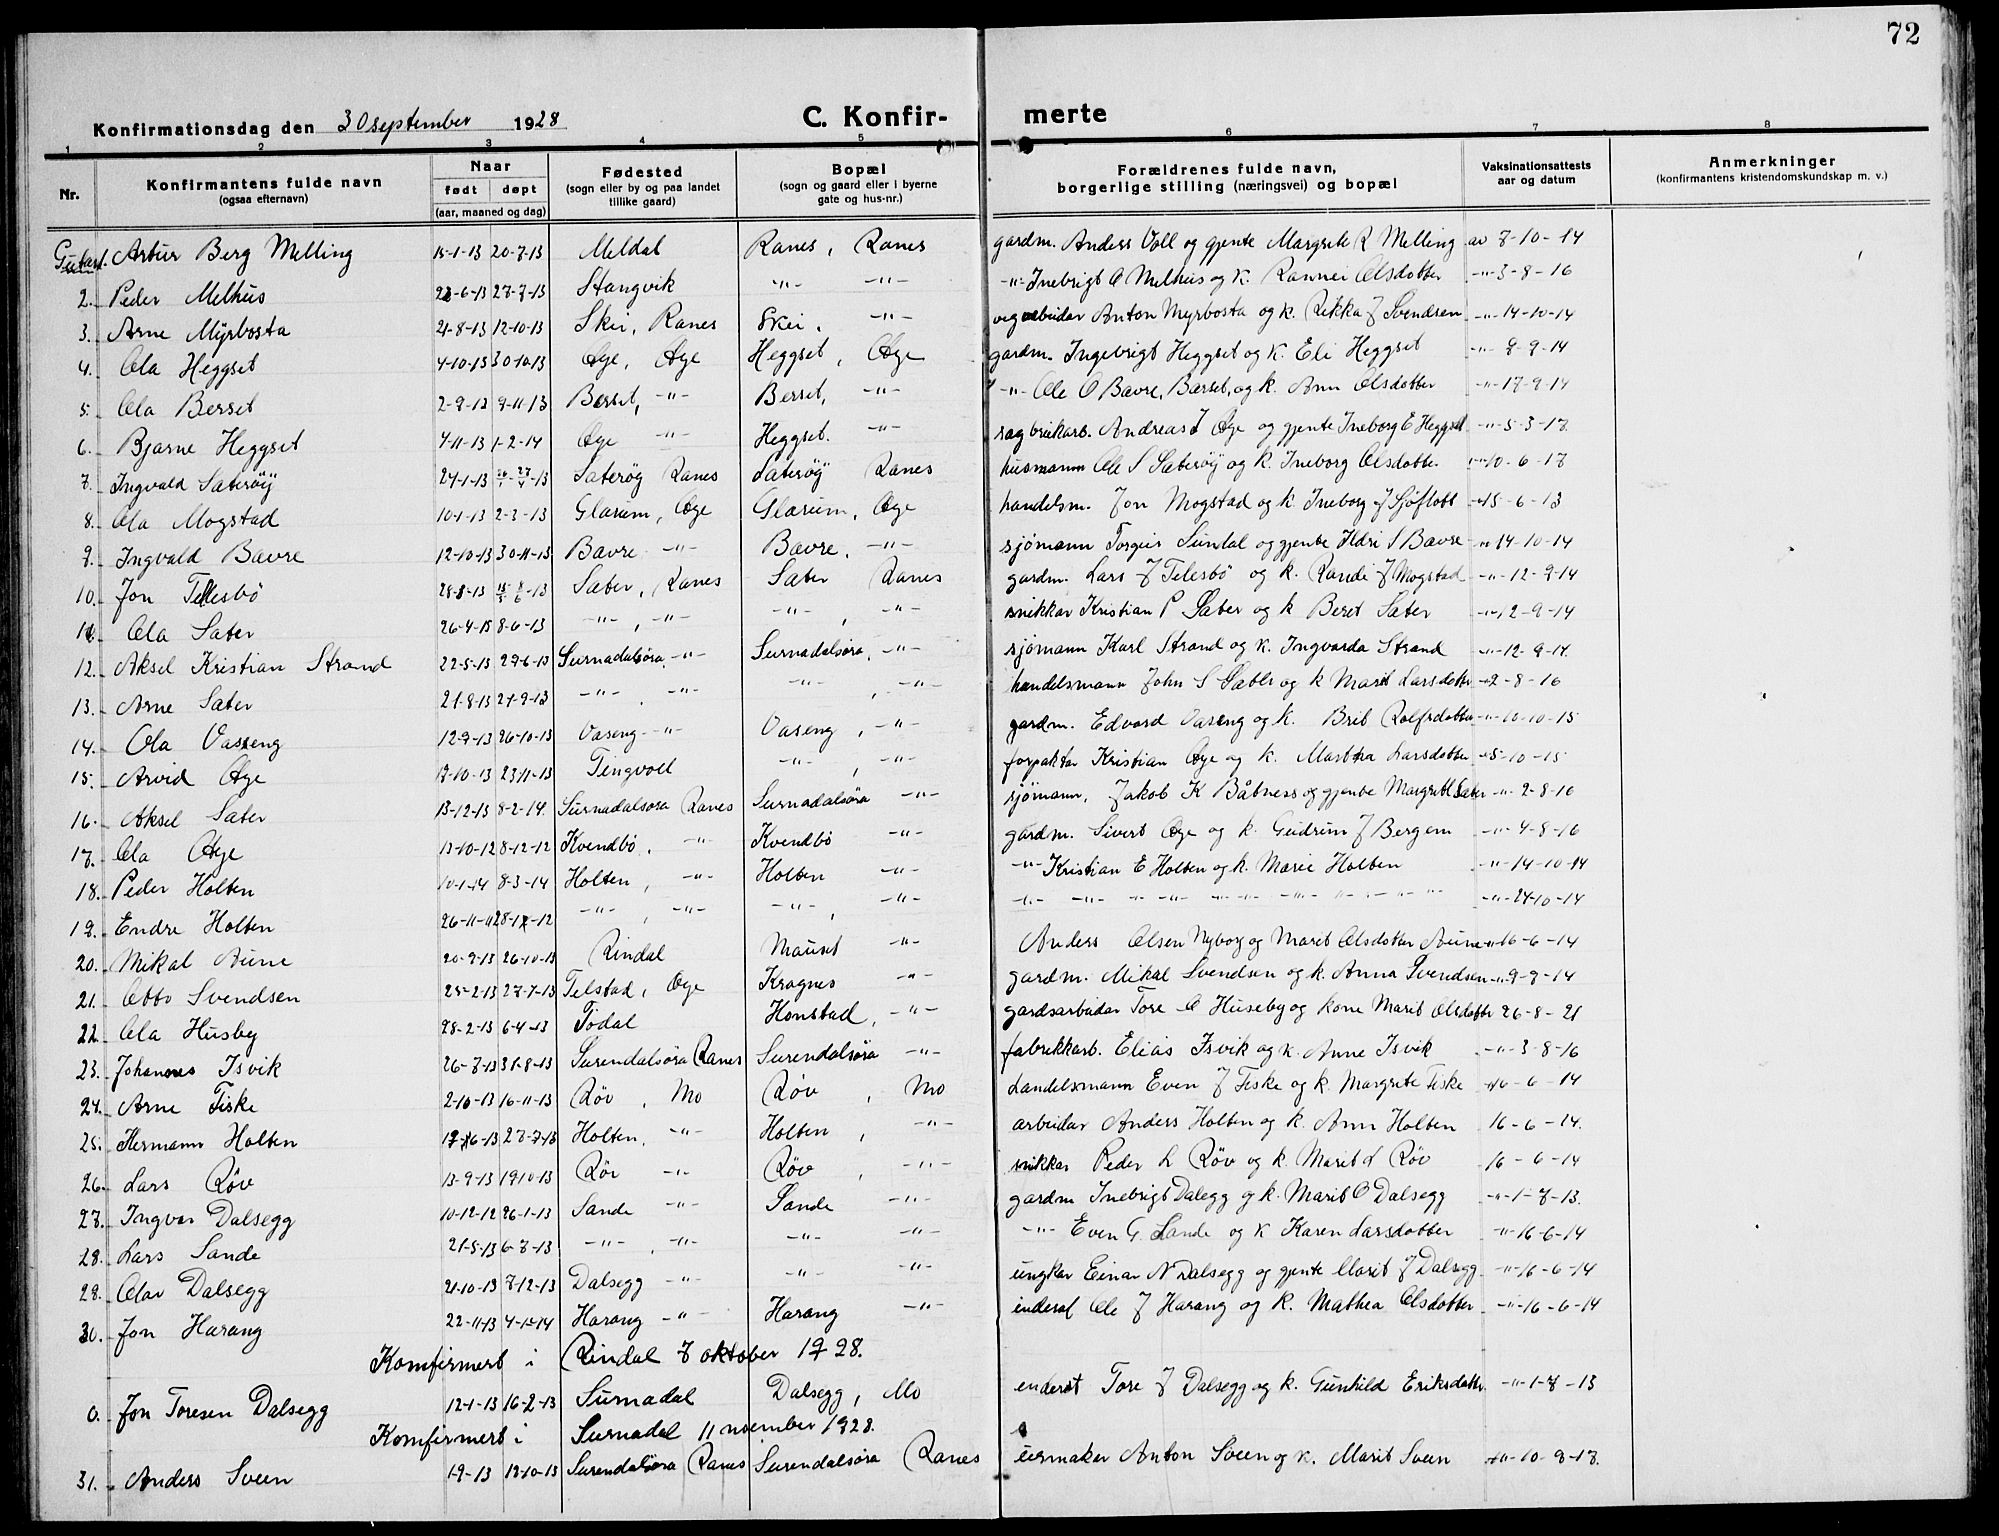 72
Konfirmationsdag den 30 september 1928 C. Konfir- merte
1 2 3 4 5 6 7 8
Nr. Konfirmantens fulde navn (ogsaa efternavn) Naar født døpt (aar, maaned og dag) Fødested (sogn eller by og paa landet tillike gaard) Bopæl (sogn og gaard eller i byerne gate og hus-nr.) Forældrenes fulde navn, borgerlige stilling (næringsvei) og bopæl Vaksinationsattests aar og datum Anmerkninger (konfirmantens kristendomskundskap m. v.)
Artur Berg Melling 15-1-13 20-7-13 Meldal Ranes, Ranes gardm. Anders Voll og gjente Margrete R Melling av 7-10-14
2. Peder Melhus 23-6-13 27-7-13 Stangvik -"- -"- -"- Inebrigt O Melhus og k. Rannei Olsdotter -"- 3-8-16
3. Arne Myrbosta 21-8-13 12-10-13 Skei, Ranes Skei, -"- vegarbeidar Anton Myrbosta og k. Rikka J Svendsen -"- 14-10-14
4. Ola Heggset 4-10-13 30-10-13 Øye, Øye Heggset, Øye gardm. Ingebrigt Heggset og k. Eli Heggset -"- 9-9-14
5. Ola Berset 2-9-13 9-11-13 Berset, -"- Berset, -"- -"- Ole O Bævre, Bærset, og k. Ann Olsdotter -"- 17-9-14
6. Bjarne Heggset 4-11-13 1-2-14 Øye -"- Heggset. -"- sagbrukarb. Andreas J Øye og gjente Ineborg E Heggset -"- 5-3-17
7. Ingvald Sæterøy 24-1-13 Sæterøy Ranes Sæterøy Ranes husmann Ole S Sæterøy og k. Ineborg Olsdotter -"- 10-6-17
8. Ola Mogstad 10-1-13 2-3-13 Glærum, Øye Glærum, Øye handelsm. Jon Mogstad og k. Ineborg J Sjøflott -"- 15-6-13
9. Ingvald Bævre 12-10-13 30-11-13 Bævre -"- Bævre, -"- sjømann Torgeir Sundal og gjente Ildri S Bævre -"- 14-10-14
10. Jon Telesbø 28-8-13 Sæter, Ranes Sæter Ranes gardm. Lars J Telesbø og k. Randi J Mogstad -"- 12-9-14
11. Ola Sæter 26-4-13 8-6-13 -"- , -"- -"- , -"- snikkar Kristian P Sæter og k Beret Sæter -"- 12-9-14
12. Aksel Kristian Strand 22-5-13 29-6-13 Surnadalsøra, -"- Surnadalsøra, -"- sjømann Karl Strand og k. Ingvarda Strand -"- 12-9-14.
13. Arne Sæter 21-8-13 21-9-13 -"- -"- -"- , -"- handelsmann John S Sæter og k Marit Larsdotter -"- 2-8-16
14. Ola Vaseng 12-9-13 26-10-13 Vaseng -"- Vaseng, -"- gardm. Edvard Vaseng og k. Brit Rolfsdotter -"- 10-10-15
15. Arvid Øye 17-10-13 23-11-13 Tingvoll -"- , -"- forpaktar Kristian Øye og k. Martha Larsdotter -"- 5-10-15
16. Aksel Sæter 13-12-13 8-2-14 Surnadalsøra Ranes Surnadalsøra -"- sjømann, Jakob K Båtness og gjente Margrete Sæter -"- 2-8-16
17. Ola Øye 13-10-12 8-12-12 Kvendbø, -"- Kvendbø -"- gardm. Sivert Øye og k. Gudrun J Bergem -"- 4-8-16
18. Peder Holten 10-1-14 8-3-14 Holten, -"- Holten -"- -"- Kristian E Holten og k. Marie Holten -"- 14-10-14
19. Endre Holten 26-11-12 8-12-12 -"- , -"- -"- , -"- -"- -"- -"- -"- -"- -"- -"- -"- 24-10-14
20. Mikal Aune 20-9-13 26-10-13 Rindal Mauset -"- Anders Olsen Nyborg og Marit Olsdotter Aune -"- 16-6-14
21. Otto Svendsen 25-2-13 27-7-13 Telstad, Øye Kragnes -"- gardm. Mikal Svendsen og k. Anna Svendsen -"- 9-9-14
22. Ola Husby 28-2-13 6-4-13 Todal Honstad, -"- gardsarbeidar Tore O Huseby og kone Marit Olsdotter 26-8-21
23. Johannes Isvik 26-7-13 31-8-13 Surendalsøra Ranes Surendalsøra -"- fabrikkarb. Elias Isvik og k. Anne Isvik -"- 3-8-16
24. Arne Fiske 2-10-13 16-11-13 Røv, Mo Røv, Mo handelsmann Even J Fiske og k. Margrete Fiske -"- 16-6-14
25. Hermann Holten 17-6-13 27-7-13 Holten, -"- Holten, -"- arbeidar Anders Holten og k. Ann Holten 16-6-14.
26. Lars Røv 13-9-13 19-10-13 Røv -"- Røv, -"- snikkar Peder L Røv og k. Marit L Røv 16-6-14
27. Ingvar Dalsegg 10-12-12 26-1-13 Sande -"- Sande -"- gardm Inebrigt Dalegg og k. Marit O Dalsegg -"- 1-7-13.
28. Lars Sande 21-5-13 6-7-13 -"- , -"- -"- -"- -"- Even G Sande og k Karen Larsdotter -"- 16-6-14
28. Olav Dalsegg 21-10-13 7-12-13 Dalsegg -"- -"- -"- ungkar Einar N Dalsegg og gjente Marit J Dalsegg -"- 16-6-14
30. Jon Harang 22-11-13 4-1-14 Harang -"- Harang -"- inderst Ole J Harang og k. Mathea Olsdotter -"- 16-6-14
Komfirmert i Rindal 7 oktober 1928.
0. Jon Toresen Dalsegg 12-1-13 16-2-13 Surnadal Dalsegg, Mo enderst Tore J Dalsegg og k. Gunhild Eriksdotter -"- 1-7-13
Komfirmert i Surnadal 11 november 1928.
31. Anders Sveen 1-9-13 19-10-13 Surendalsøra Ranes Surendalsøra Ranes urmaker Anton Sveen og k. Marit Sveen -"- 10-9-17.